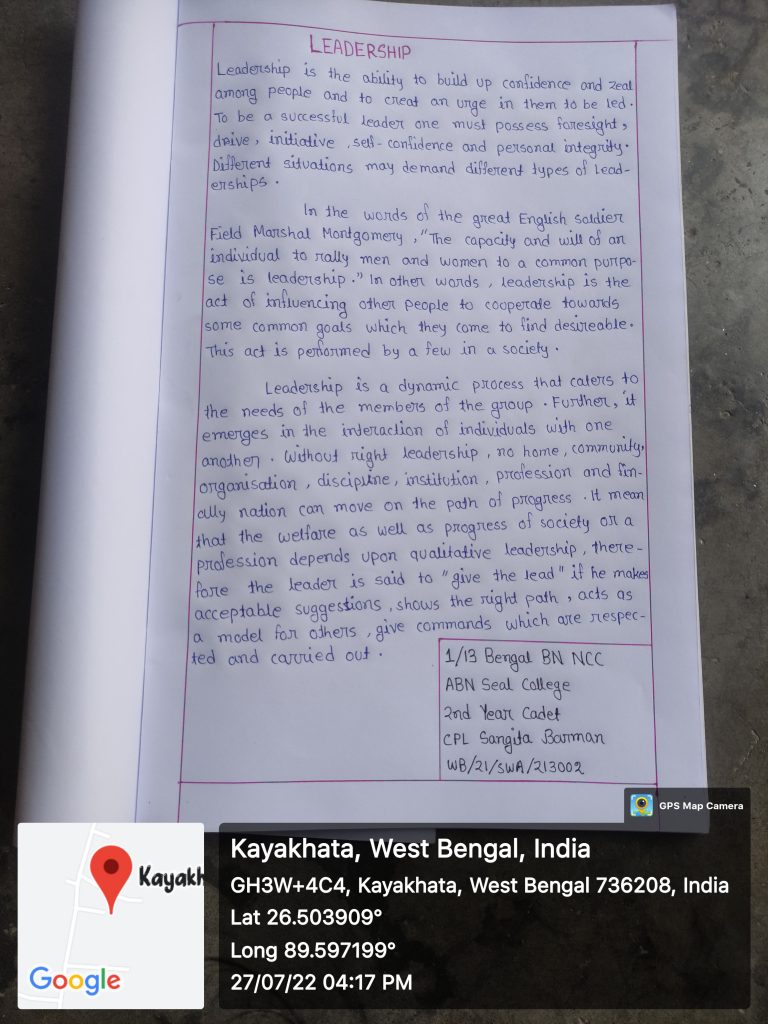 LEADERSHIP
Leadership is the ability to build up confidence and zeal
among people and to creat an urge in them to be led.
To be a successful leader one must possess foresight,
drive, initiative, self-confidence and personal integrity.
Different situations may demand different types of lead-
erships.
In the words of the great English soldier
Field Marshal Montgomery, "The capacity and will of an
individual to rally men and women to a common purpo-
se is leadership." In other words, leadership is the
act of influencing other people to cooperate towards
some common goals which they come to find desireable.
This act is performed by a few in a society.
Leadership is a dynamic process that caters to
the needs of the members of the group. Further, it
emerges in the interaction of individuals with one
another. Without right leadership, no home, community,
organisation, discipline, institution, profession and fin-
ally nation can move on the path of progress. It mean
that the welfare as well as progress of society or a
profession depends upon qualitative leadership, there-
fore the leader is said to "give the lead" if he makes
acceptable suggestions, shows the right path, acts as
a model for others, give commands which are respec-
ted and carried out.
1/13 Bengal BN NCC
ABN Seal College
2nd Year Cadet
CPL Sangita Barman
WB/21/SWA/213002
GPS Map Camera
Kayakh
Google
Kayakhata, West Bengal, India
GH3W+4C4, Kayakhata, West Bengal 736208, India
Lat 26.503909°
Long 89.597199°
27/07/22 04:17 PM